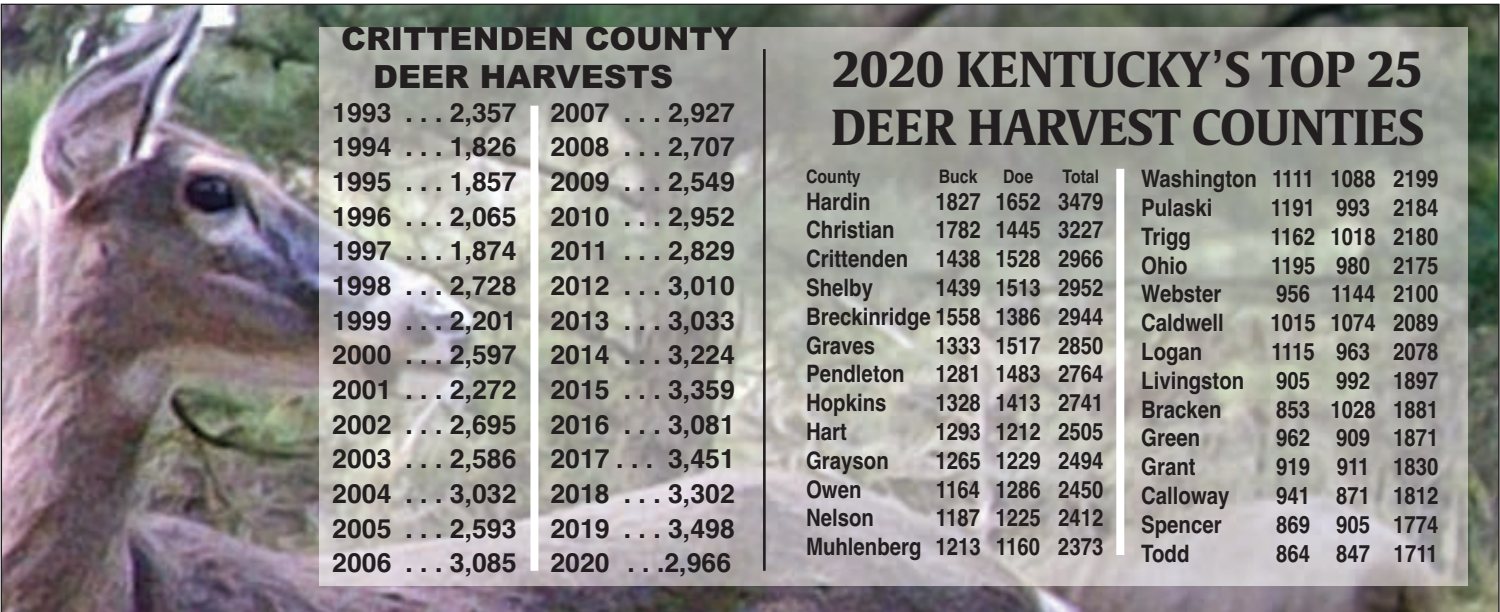 CRITTENDEN COUNTY
DEER HARVESTS
1993 ... 2,357
1994 ... 1,826
1995 ... 1,857
1996 ... 2,065
1997 ... 1,874
1998 ... 2,728
1999 ... 2,201
2000 ... 2,597
2001 ... 2,272
2002 ... 2,695
2003 ... 2,586
2004 ... 3,032
2005 ... 2,593
2006 ... 3,085
2007 ... 2,927
2008 ... 2,707
2009 ... 2,549
2010 ... 2,952
2011 ... 2,829
2012 ... 3,010
2013 ... 3,033
2014 ... 3,224
2015 ... 3,359
2016 ... 3,081
2017 ... 3,451
2018 ... 3,302
2019 ... 3,498
2020 ...2,966
2020 KENTUCKY'S TOP 25
DEER HARVEST COUNTIES
County Buck Doe Total
Hardin 1827 1652 3479
Christian 1782 1445 3227
Crittenden 1438 1528 2966
Shelby 1439 1513 2952
Breckinridge 1558 1386 2944
Graves 1333 1517 2850
Pendleton 1281 1483 2764
Hopkins 1328 1413 2741
Hart 1293 1212 2505
Grayson 1265 1229 2494
Owen 1164 1286 2450
Nelson 1187 1225 2412
Muhlenberg 1213 1160 2373
Washington 1111 1088 2199
Pulaski 1191 993 2184
Trigg 1162 1018 2180
Ohio 1195 980 2175
Webster 956 1144 2100
Caldwell 1015 1074 2089
Logan 1115 963 2078
Livingston 905 992 1897
Bracken 853 1028 1881
Green 962 909 1871
Grant 919 911 1830
Calloway 941 871 1812
Spencer 869 905 1774
Todd 864 847 1711